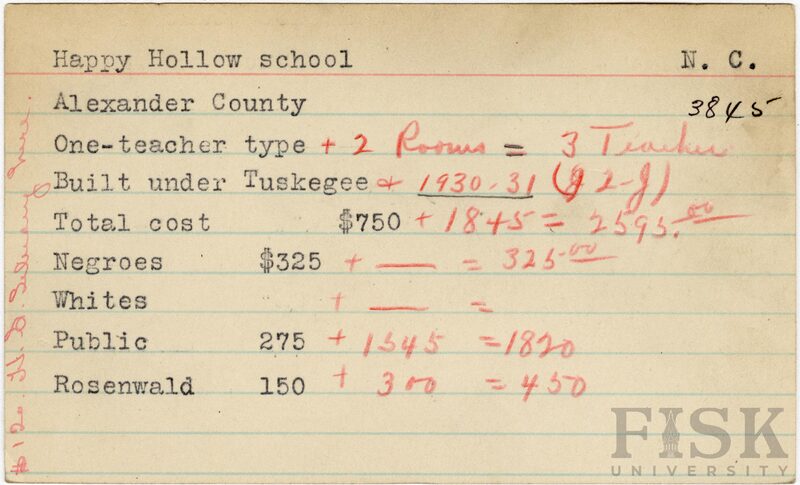 Happy Hollow school N. C.
Alexander County 3845
One-teacher type + 2 Rooms = 3 Teacher
Built under Tuskegee + 1930-31 (2-J)
Total cost $750 + 1845 = 2595.00
Negroes $325 + — = 325.00
Whites + — =
Public 275 + 1545 = 1820
Rosenwald 150 + 300 = 450
FISK
UNIVERSITY